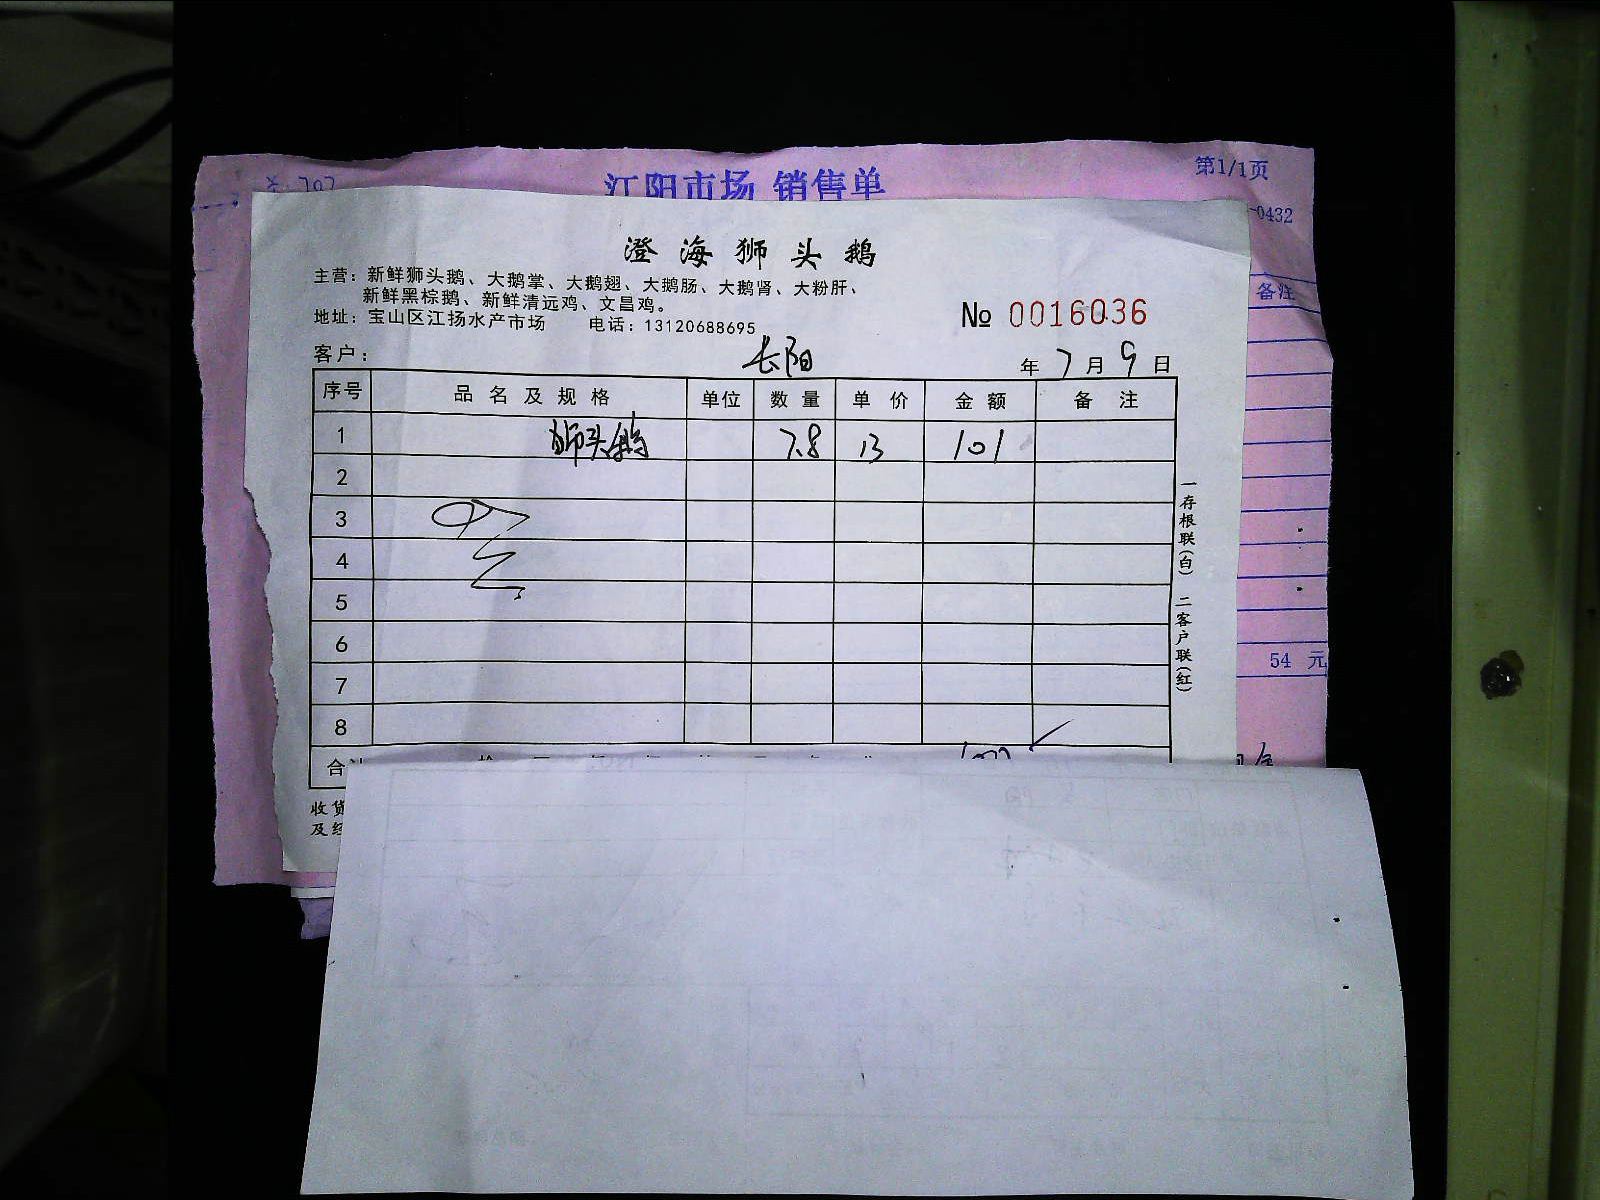 江阳市场 销售单
第1/1页
-0432
备注
澄海狮头鹅
主营：新鲜狮头鹅、大鹅掌、大鹅翅、大鹅肠、大鹅肾、大粉肝、
新鲜黑棕鹅、新鲜清远鸡、文昌鸡。
地址：宝山区江扬水产市场 电话：13120688695
№ 0016036
客户： 长阳 年 7 月 9 日
序号 品名及规格 单位 数量 单价 金额 备注
1 狮头鹅 7.8 13 101
2
3
4
5
6
7
8
合
收货
及经
一存根联(白) 二客户联(红)
54 元